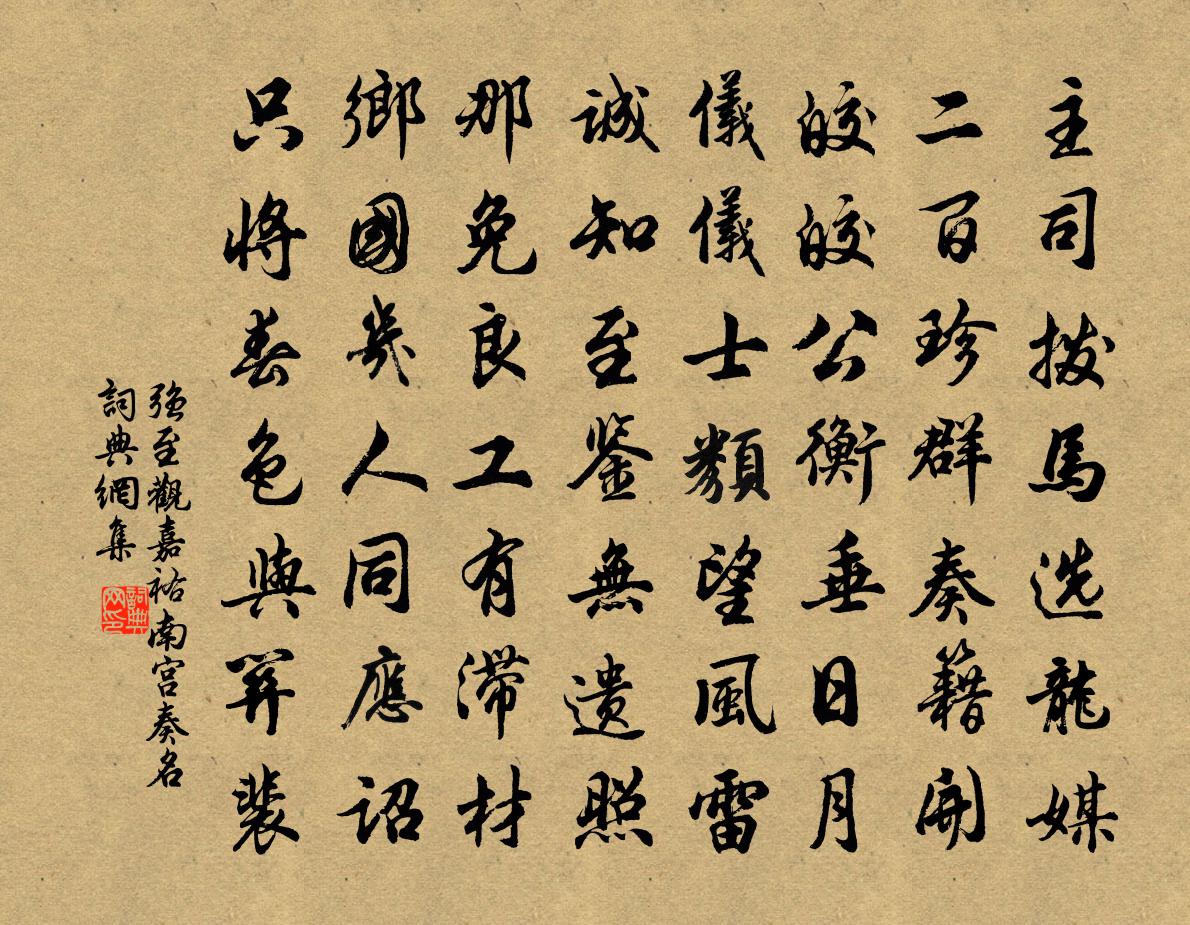 主司拔馬选龍媒
二百珍群奏籍開
皎皎公衡垂日月
儀儀士類望風雷
誠知至鉴無遗照
那免良工有滞材
鄉國幾人同應詔
只將春色與裴
强至觀嘉祐南宫奏名
詞典網集
詞典网印